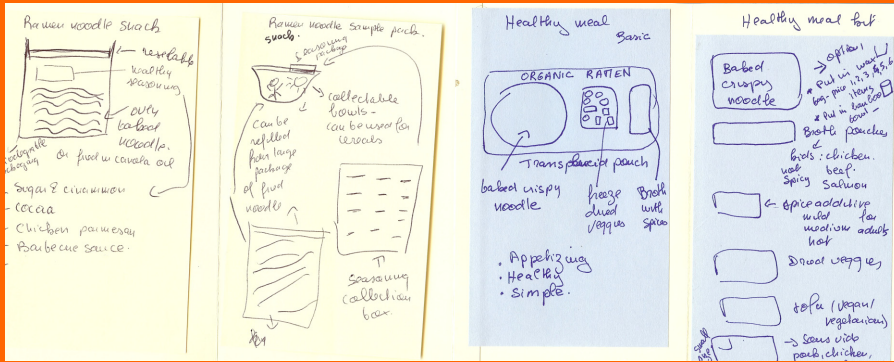 Ramen noodle snack
resealable
healthy
seasoning
oven
baked
noodle.
or fried in canola oil
Sugar & cinnamon
cocoa
Chicken parmesan
Barbecue sauce.
Ramen noodle sample pack.
snack.
seasoning
package
collectable
bowls -
can be used for
cereals
can be
refilled
from large
package
of fried
noodle
seasoning
collection
box.
Healthy meal
Basic
ORGANIC RAMEN
Transparent pouch
baked crispy
noodle
freeze
dried
veggies
Broth
with
spices
• Appetizing
• Healthy
• Simple.
Healthy meal but
Baked
crispy
noodle
option 1
* Put in
bag - price 1, 2, 3, 4, 5, 6
items
* Put in bamboo
bowl -
Broth pouches
kids: chicken.
not beef.
spicy salmon
spice additive
mild for
medium adults
hot
Dried veggies
tofu (vegan/
vegetarians)
small
size
sous vide
pork, chicken,